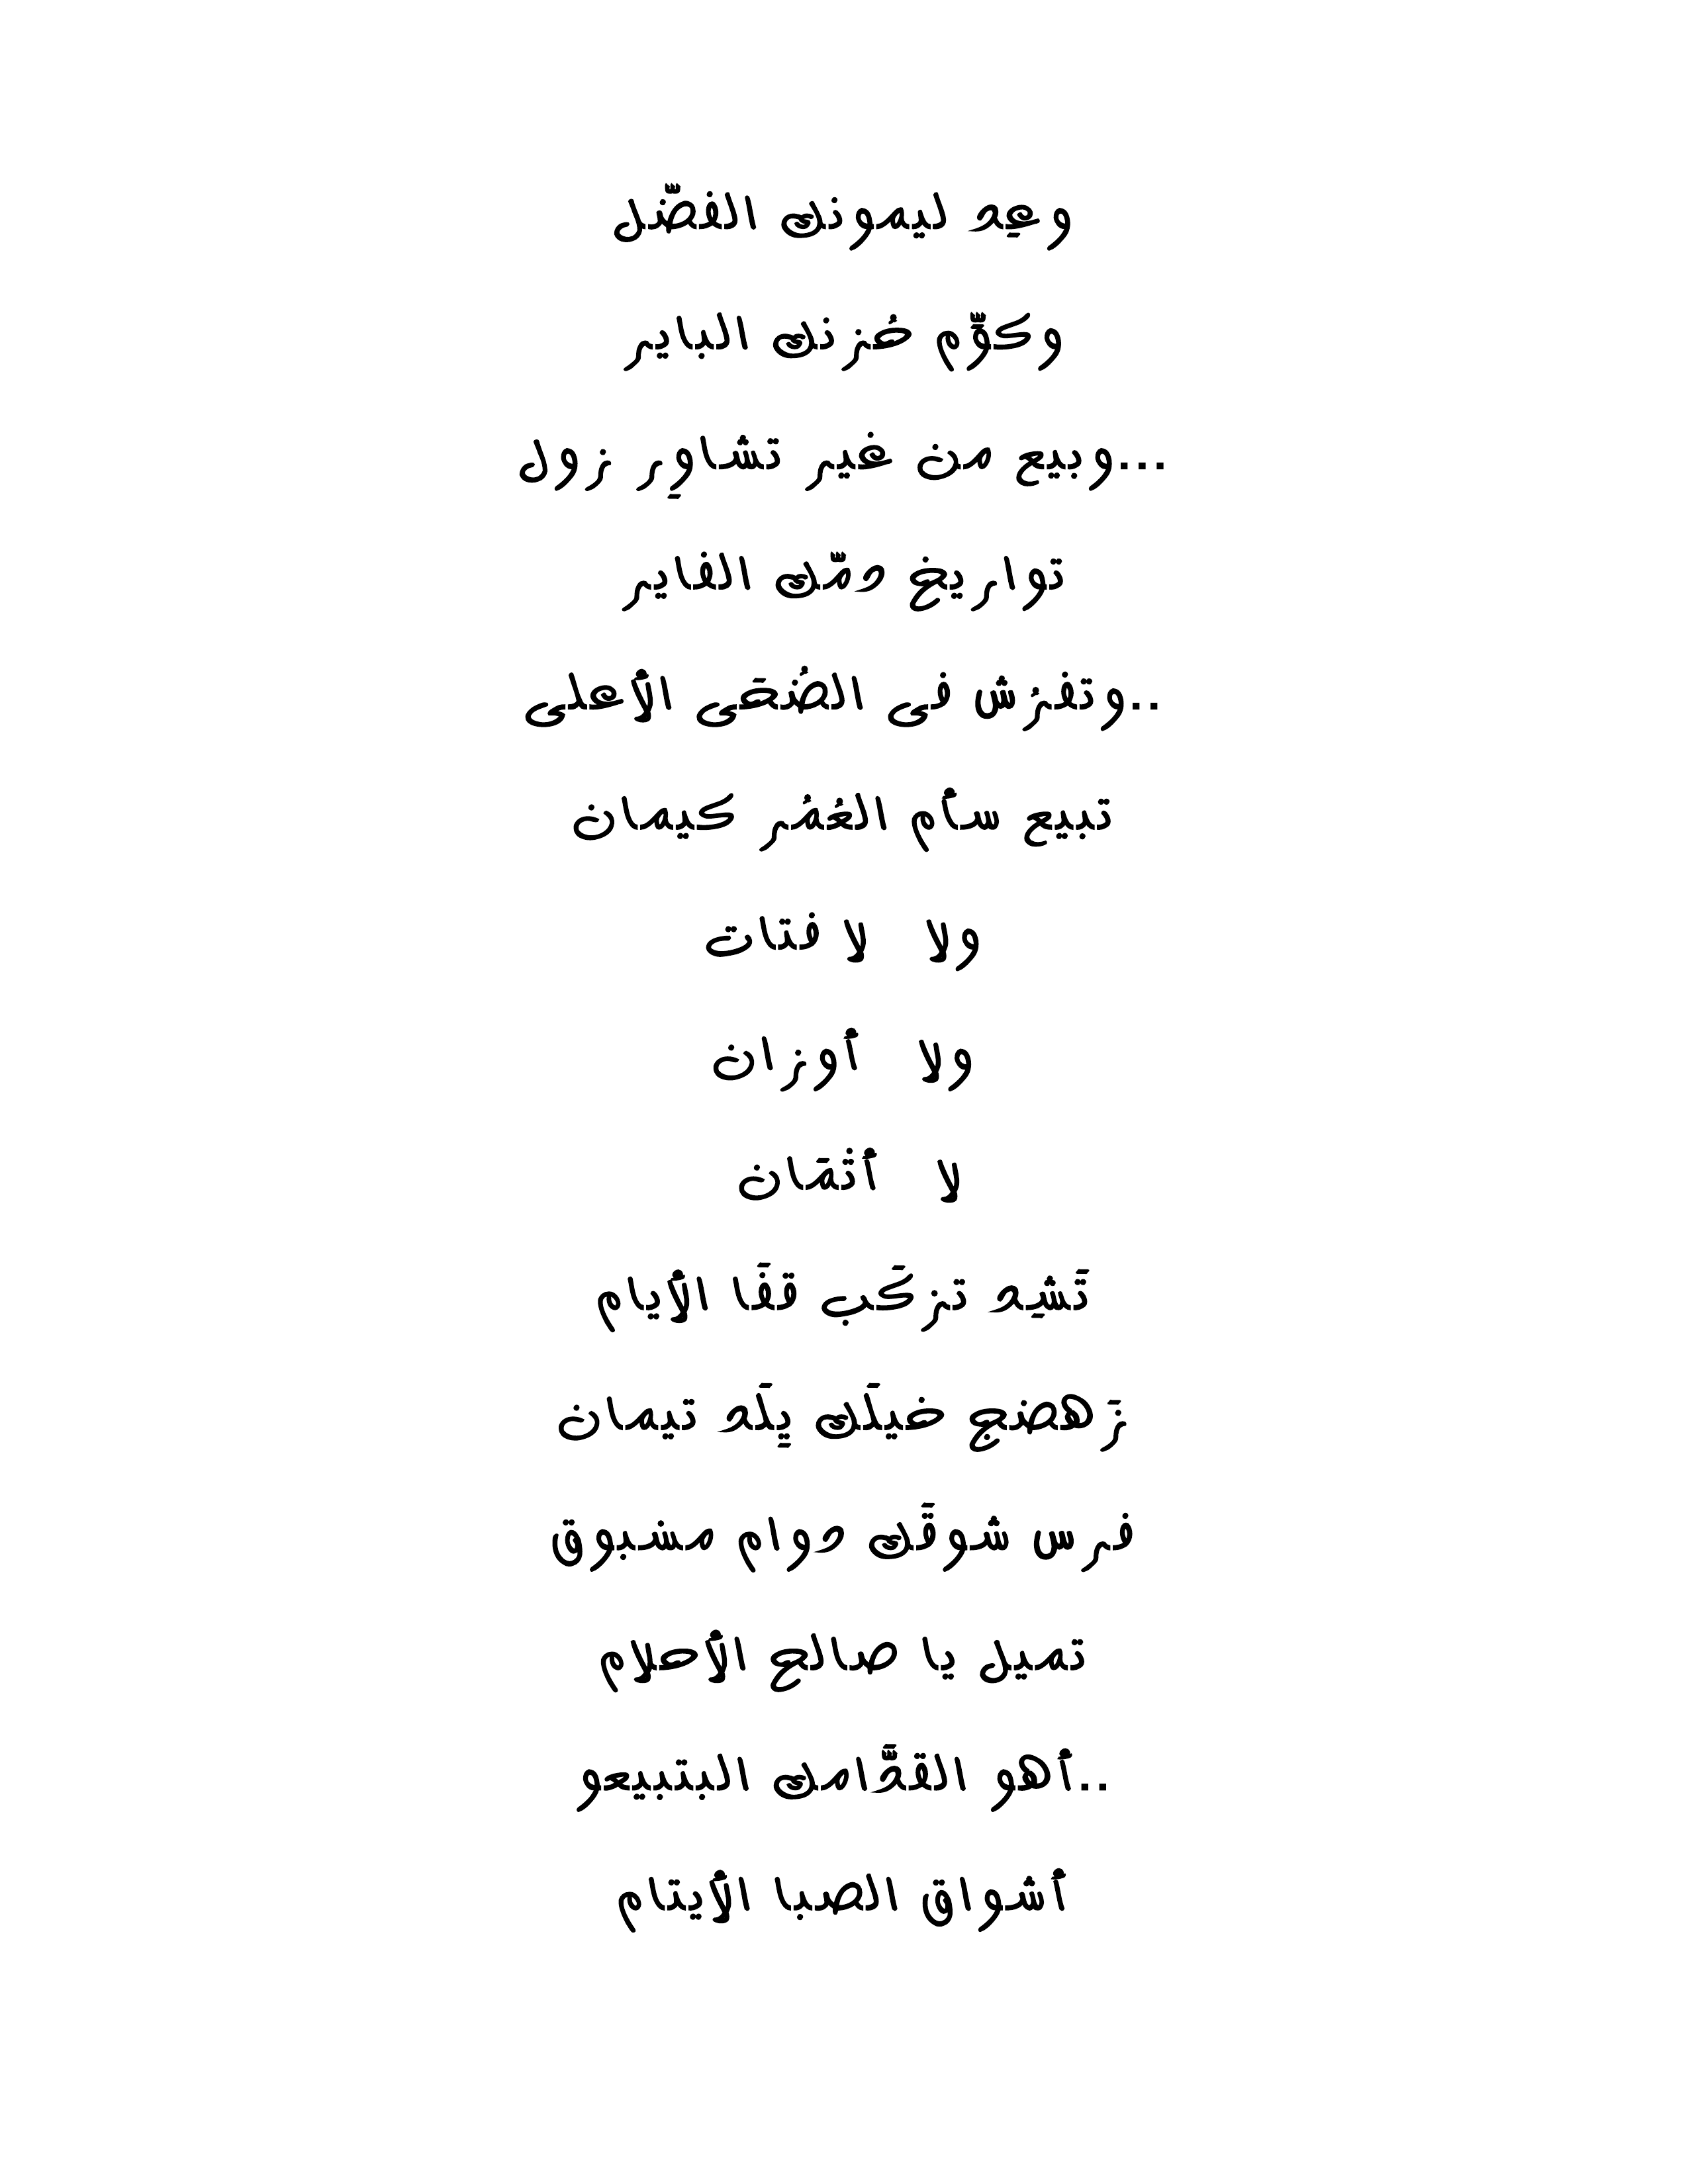 وعِد ليمونك الفضّل
وكوِّم حُزنك الباير
...وبيع من غير تشاوِر زول
تواريخ دمّك الفاير
..وتفرُش فى الضُحَى الأعلى
تبيع سأم العُمُر كيمان
ولا لا فتات
ولا أوزان
لا أثْمَان
تَشِد تركَب قفَا الأيام
زَهضج خيلَك بِلَد تيمان
فرس شوقَك دوام مسْبوق
تميل يا صالح الأحلام
..أهو القدَّامك البتبيعو
أشواق الصبا الأيتام